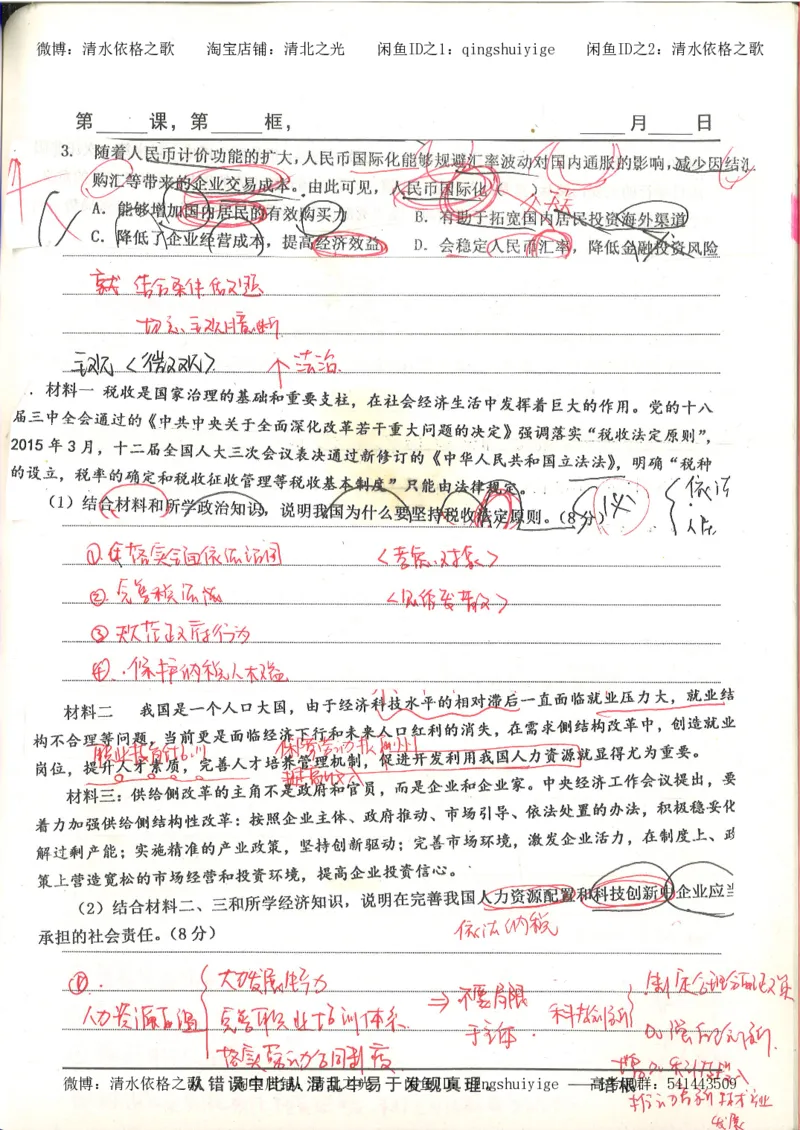 微博：清水依格之歌 淘宝店铺：清北之光 闲鱼ID之1：qingshuiyige 闲鱼ID之2：清水依格之歌
第____课，第____框， ____月____日
3. 随着人民币计价功能的扩大，人民币国际化能够规避汇率波动对国内通胀的影响，减少因结汇
购汇等带来的企业交易成本。由此可见，人民币国际化（ ）
A．能够增加国内居民的有效购买力 B．有助于拓宽国内居民投资海外渠道
C．降低了企业经营成本，提高经济效益 D．会稳定人民币汇率，降低金融投资风险
结合条件做对题
切忌主观臆断
主观〈微观〉 法治
．材料一 税收是国家治理的基础和重要支柱，在社会经济生活中发挥着巨大的作用。党的十八
届三中全会通过的《中共中央关于全面深化改革若干重大问题的决定》强调落实“税收法定原则”，
2015年3月，十二届全国人大三次会议表决通过新修订的《中华人民共和国立法法》，明确“税种
的设立，税率的确定和税收征收管理等税收基本制度”只能由法律规定。
（1）结合材料和所学政治知识，说明我国为什么要坚持税收法定原则。（8分）
依法
①落实全面依法治国
②完善税法
③规范政府行为
④保护纳税人权益
材料二 我国是一个人口大国，由于经济科技水平的相对滞后一直面临就业压力大，就业结
构不合理等问题，当前更是面临经济下行和未来人口红利的消失，在需求侧结构改革中，创造就业
岗位，提升人才素质，完善人才培养管理机制，促进开发利用我国人力资源就显得尤为重要。
材料三：供给侧改革的主角不是政府和官员，而是企业和企业家。中央经济工作会议提出，要
着力加强供给侧结构性改革：按照企业主体、政府推动、市场引导、依法处置的办法，积极稳妥化
解过剩产能；实施精准的产业政策，坚持创新驱动；完善市场环境，激发企业活力，在制度上、政
策上营造宽松的市场经营和投资环境，提高企业投资信心。
（2）结合材料二、三和所学经济知识，说明在完善我国人力资源配置和科技创新中企业应当
承担的社会责任。（8分）
依法纳税
① 大力发展生产力
人力资源配置 完善职业培训体系 ⇒不要局限于主体 科技创新
落实劳动合同制度
微博：清水依格之歌 淘宝店铺：清北之光 闲鱼ID：qingshuiyige 高考QQ群：541443509
从错误中比从混乱中易于发现真理。——培根